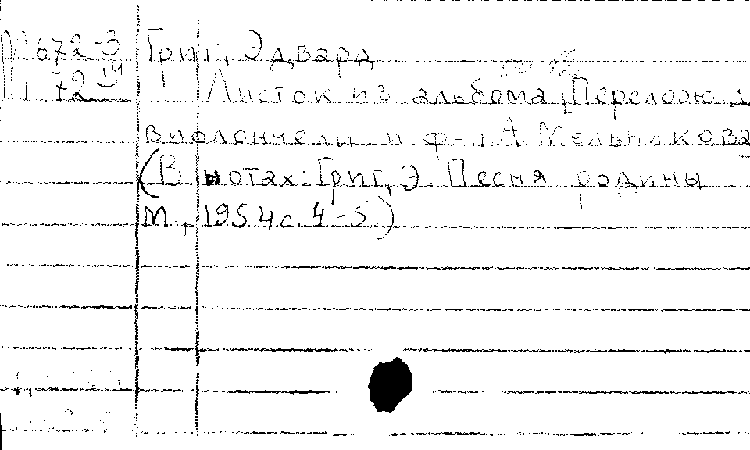 М 672-3 Григ, Эдвард
1 72 Листок из альбома [Перелож. д.
виолончели и ф-п. А. Мельникова
(В нотах: Григ, Э. Песня родины
М., 1954 с. 4-5.)